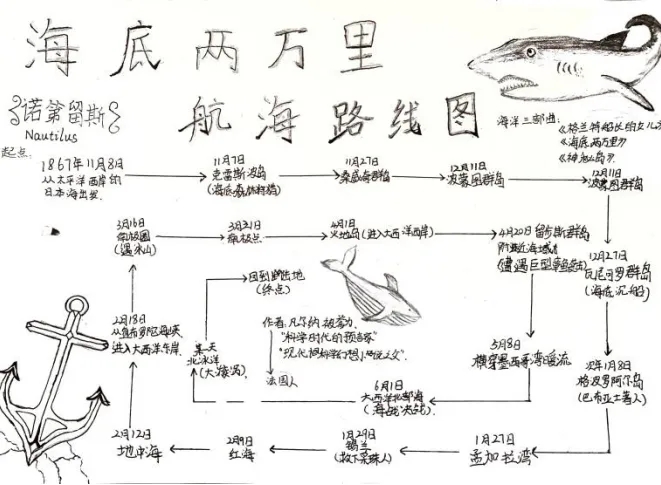 海底两万里
航海路线图
诺第留斯
Nautilus
海洋三部曲:
《格兰特船长的女儿》
《海底两万里》
《神秘岛》
起点:
1867年11月8日
从太平洋西岸的
日本海出发
11月7日
克雷斯波岛
(海底森林狩猎)
11月27日
桑威奇群岛
12月11日
波蒙图群岛
12月11日
波蒙图群岛
12月27日
瓦尼可罗群岛
(海底沉船)
次年1月8日
格波罗阿尔岛
(巴布亚土著人)
1月27日
孟加拉湾
1月29日
锡兰
(救下采珠人)
2月9日
红海
2月12日
地中海
2月18日
从直布罗陀海峡
进入大西洋东岸
3月16日
南极圈
(遇冰山)
3月21日
南极点
4月1日
火地岛(进入大西洋西岸)
4月20日 留步斯群岛
附近海域
(遭遇巨型章鱼袭击)
5月8日
横穿墨西哥湾暖流
6月1日
大西洋北部海
(海战决战)
某天
北冰洋
(大漩涡)
回到陆地
(终点)
作者:凡尔纳 被誉为
"科学时代的预言家"
"现代科学幻想小说之父"
法国人